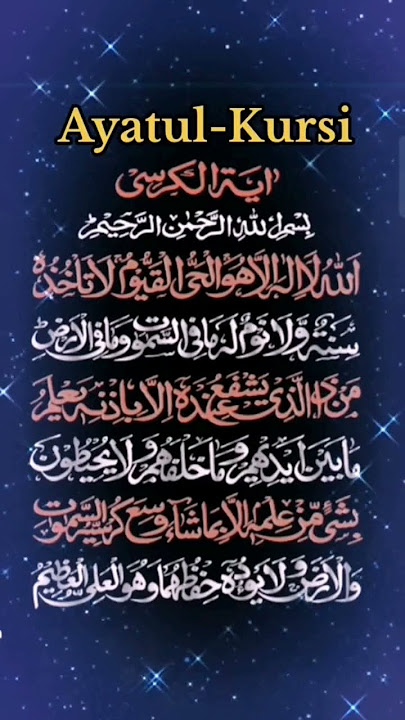 Ayatul-Kursi
اٰیَةُ الْكُرْسِی
بِسْمِ اللهِ الرَّحْمٰنِ الرَّحِیْمِ
اَللهُ لَا اِلٰهَ اِلَّا هُوَ الْحَیُّ الْقَیُّوْمُ لَا تَاْخُذُهٗ
سِنَةٌ وَّلَا نَوْمٌ لَهٗ مَا فِی السَّمٰوٰتِ وَمَا فِی الْاَرْضِ
مَنْ ذَا الَّذِیْ یَشْفَعُ عِنْدَهٗ اِلَّا بِاِذْنِهٖ یَعْلَمُ
مَا بَیْنَ اَیْدِیْهِمْ وَمَا خَلْفَهُمْ وَلَا یُحِیْطُوْنَ
بِشَیْءٍ مِّنْ عِلْمِهٖ اِلَّا بِمَا شَآءَ وَسِعَ كُرْسِیُّهُ السَّمٰوٰتِ
وَالْاَرْضَ وَلَا یَـُٔوْدُهٗ حِفْظُهُمَا وَهُوَ الْعَلِیُّ الْعَظِیْمُ